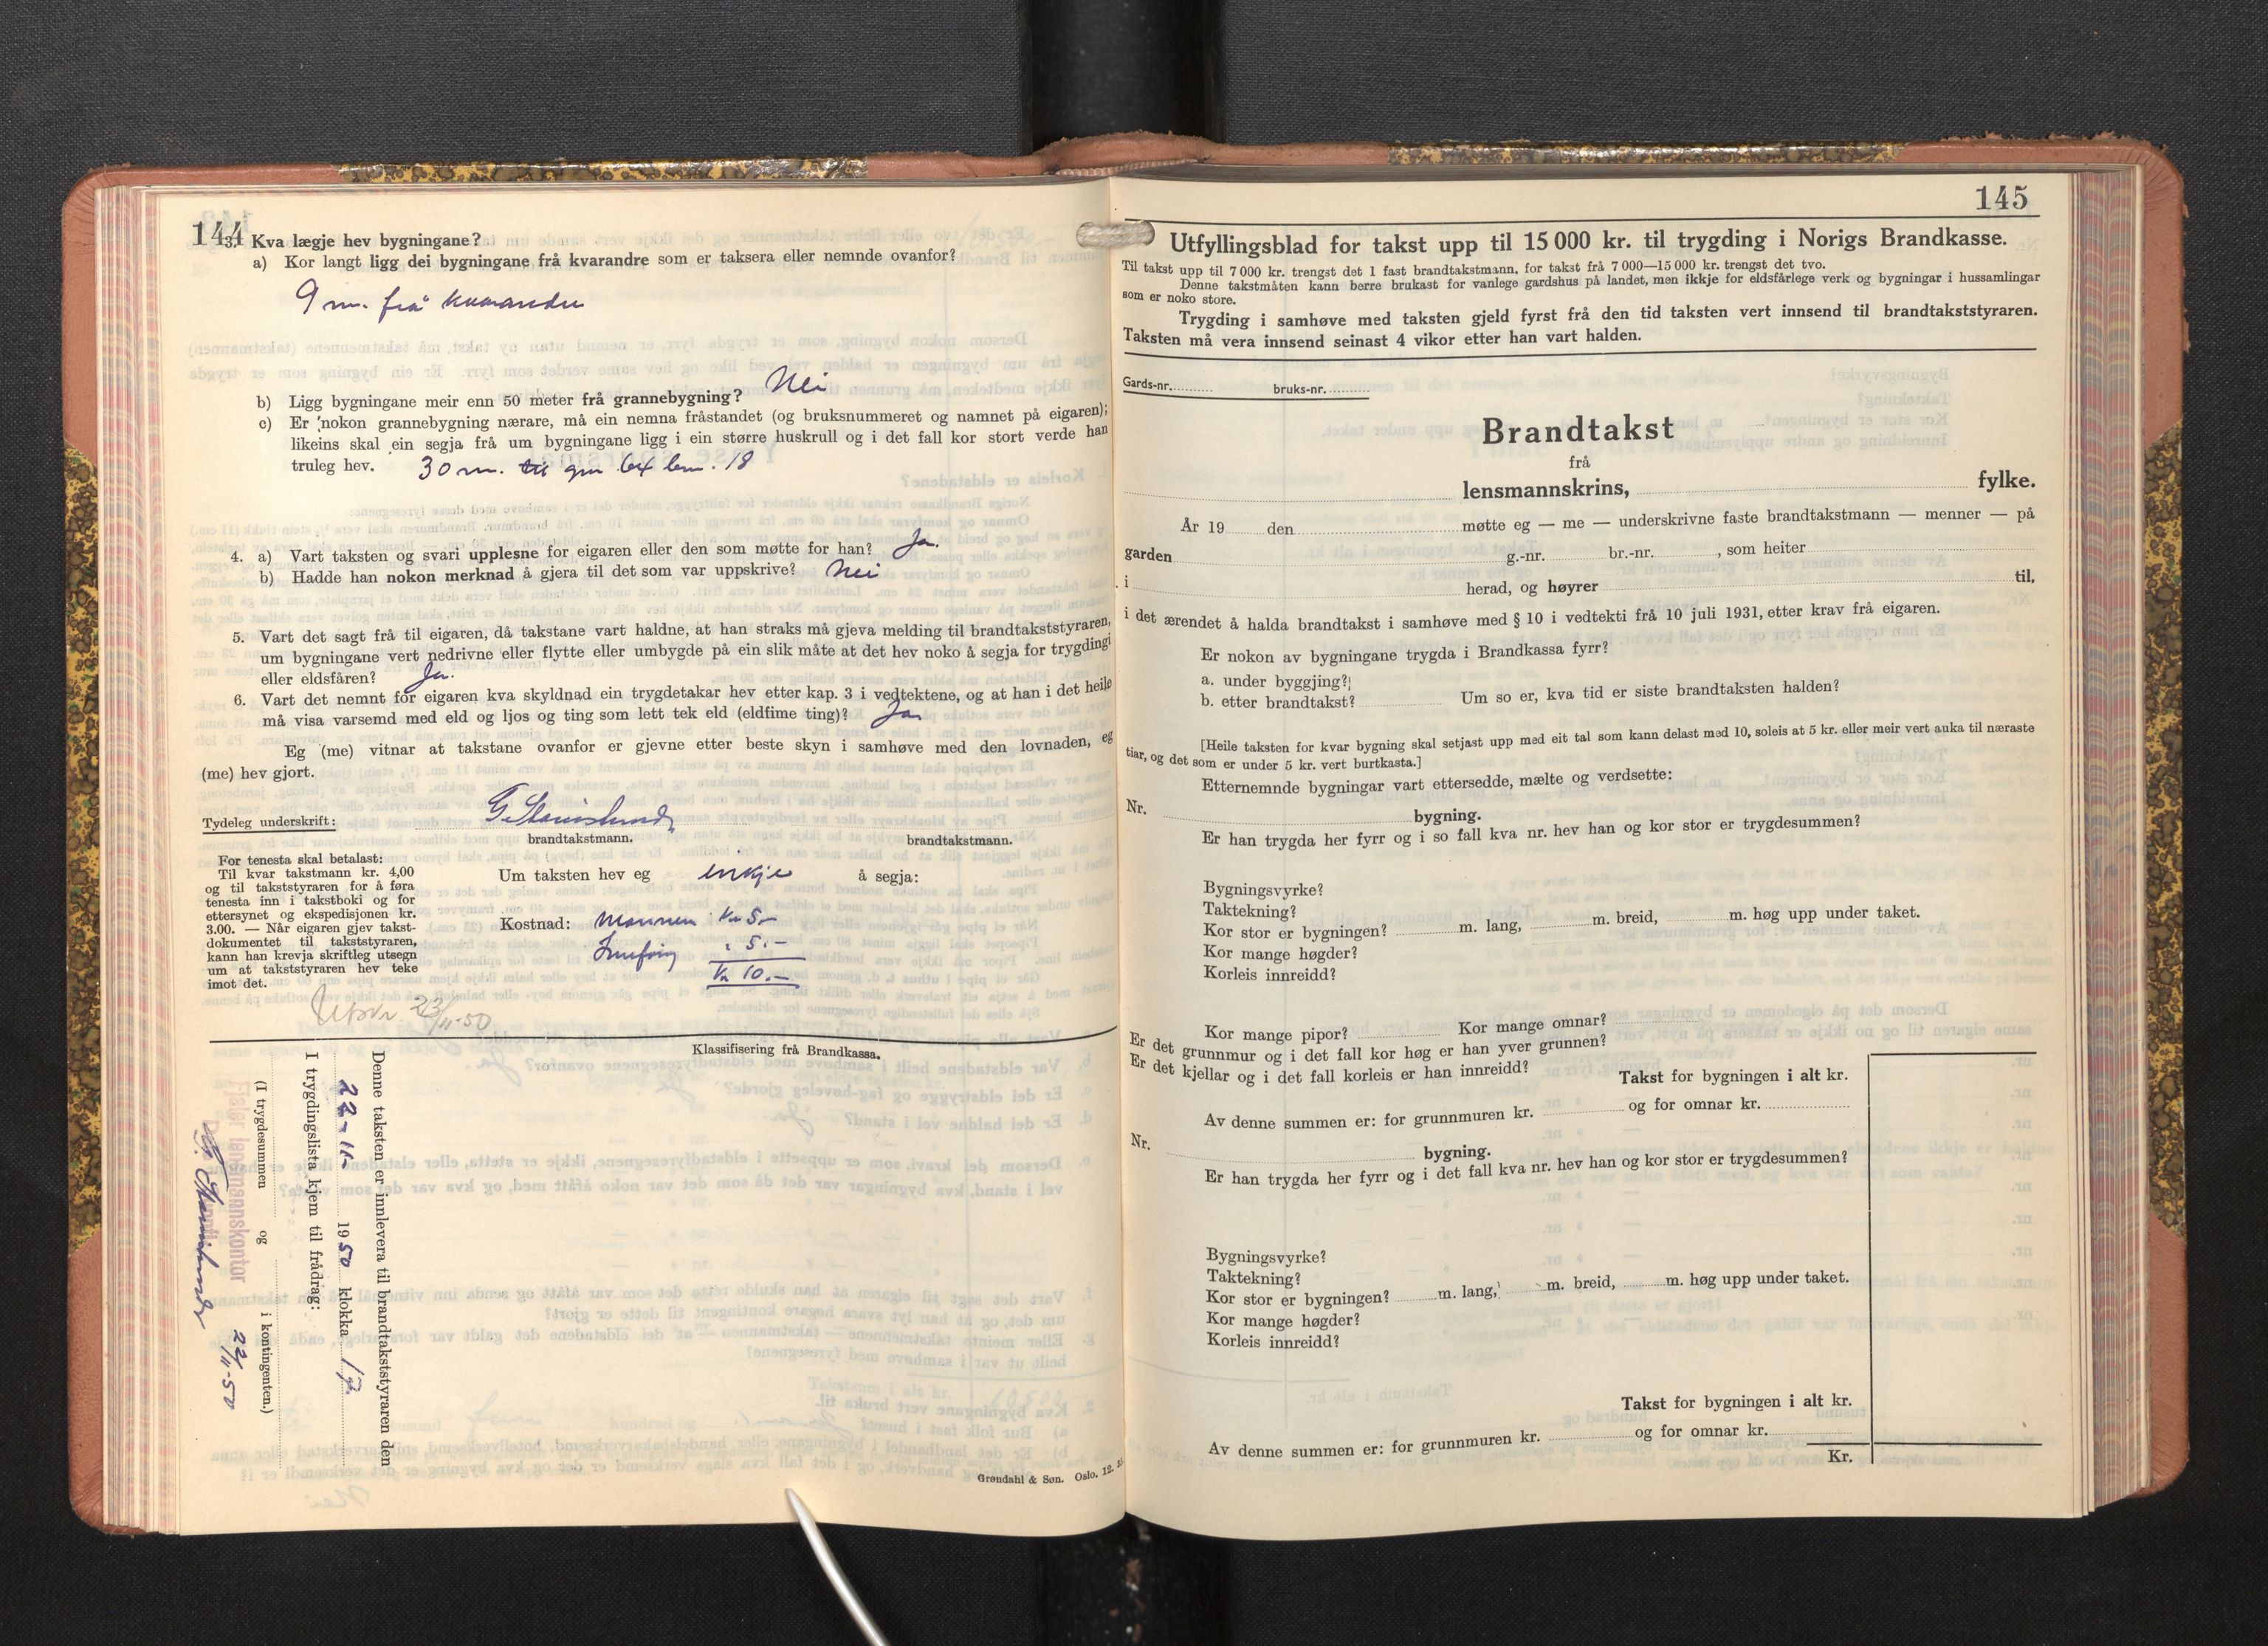 144
3. Kva lægje hev bygningane?
a) Kor langt ligg dei bygningane frå kvarandre som er taksera eller nemnde ovanfor?
9 m. frå kvarandre
b) Ligg bygningane meir enn 50 meter frå grannebygning? Nei
c) Er nokon grannebygning nærare, må ein nemna fråstandet (og bruksnummeret og namnet på eigaren);
likeins skal ein segja frå um bygningane ligg i ein større huskrull og i det fall kor stort verde han
truleg hev. 30 m. til gnr 64 bnr. 18
4. a) Vart taksten og svari upplesne for eigaren eller den som møtte for han? Ja.
b) Hadde han nokon merknad å gjera til det som var uppskrive? Nei
5. Vart det sagt frå til eigaren, då takstane vart haldne, at han straks må gjeva melding til brandtakststyraren,
um bygningane vert nedrivne eller flytte eller umbygde på ein slik måte at det hev noko å segja for trygdingi
eller eldsfåren? Ja.
6. Vart det nemnt for eigaren kva skyldnad ein trygdetakar hev etter kap. 3 i vedtektene, og at han i det heile
må visa varsemd med eld og ljos og ting som lett tek eld (eldfime ting)? Ja
Eg (me) vitnar at takstane ovanfor er gjevne etter beste skyn i samhøve med den lovnaden, eg
(me) hev gjort.
Tydeleg underskrift:
brandtakstmann. brandtakstmann.
For tenesta skal betalast:
Til kvar takstmann kr. 4,00
og til takststyraren for å føra
tenesta inn i takstboki og for
ettersynet og ekspedisjonen kr.
3.00. — Når eigaren gjev takst-
dokumentet til takststyraren,
kann han krevja skriftleg utsegn
um at takststyraren hev teke
imot det.
Um taksten hev eg inkje å segja:
Kostnad: Mannen kr 5.-
Innføring " 5.-
Kr 10.-
Utskr. 23/11-50
Klassifisering frå Brandkassa.
Denne taksten er innlevera til brandtakststyraren den
22-11- 1950 klokka 17.
I trygdingslista kjem til frådrag:
(I trygdesummen og i kontingenten.)
Fjaler lensmannskontor
22/11-50
Grøndahl & Søn. Oslo. 12.
145
Utfyllingsblad for takst upp til 15 000 kr. til trygding i Norigs Brandkasse.
Til takst upp til 7 000 kr. trengst det 1 fast brandtakstmann, for takst frå 7 000—15 000 kr. trengst det tvo.
Denne takstmåten kann berre brukast for vanlege gardshus på landet, men ikkje for eldsfårlege verk og bygningar i hussamlingar
som er noko store.
Trygding i samhøve med taksten gjeld fyrst frå den tid taksten vert innsend til brandtakststyraren.
Taksten må vera innsend seinast 4 vikor etter han vart halden.
Gards-nr. bruks-nr.
Brandtakst
frå
lensmannskrins, fylke.
År 19 den møtte eg — me — underskrivne faste brandtakstmann — menner — på
garden g.-nr. br.-nr. , som heiter
i herad, og høyrer til,
i det ærendet å halda brandtakst i samhøve med § 10 i vedtekti frå 10 juli 1931, etter krav frå eigaren.
Er nokon av bygningane trygda i Brandkassa fyrr?
a. under byggjing?
b. etter brandtakst? Um so er, kva tid er siste brandtaksten halden?
[Heile taksten for kvar bygning skal setjast upp med eit tal som kann delast med 10, soleis at 5 kr. eller meir vert auka til næraste
tiar, og det som er under 5 kr. vert burtkasta.]
Etternemnde bygningar vart ettersedde, mælte og verdsette:
Nr. bygning.
Er han trygda her fyrr og i so fall kva nr. hev han og kor stor er trygdesummen?
Bygningsvyrke?
Taktekning?
Kor stor er bygningen? m. lang, m. breid, m. høg upp under taket.
Kor mange høgder?
Korleis innreidd?
Kor mange pipor? Kor mange omnar?
Er det grunnmur og i det fall kor høg er han yver grunnen?
Er det kjellar og i det fall korleis er han innreidd?
Takst for bygningen i alt kr.
Av denne summen er: for grunnmuren kr. og for omnar kr.
Nr. bygning.
Er han trygda her fyrr og i det fall kva nr. hev han og kor stor er trygdesummen?
Bygningsvyrke?
Taktekning?
Kor stor er bygningen? m. lang, m. breid, m. høg upp under taket.
Kor mange høgder?
Korleis innreidd?
Takst for bygningen i alt kr.
Av denne summen er: for grunnmuren kr. og for omnar kr.
Kr.